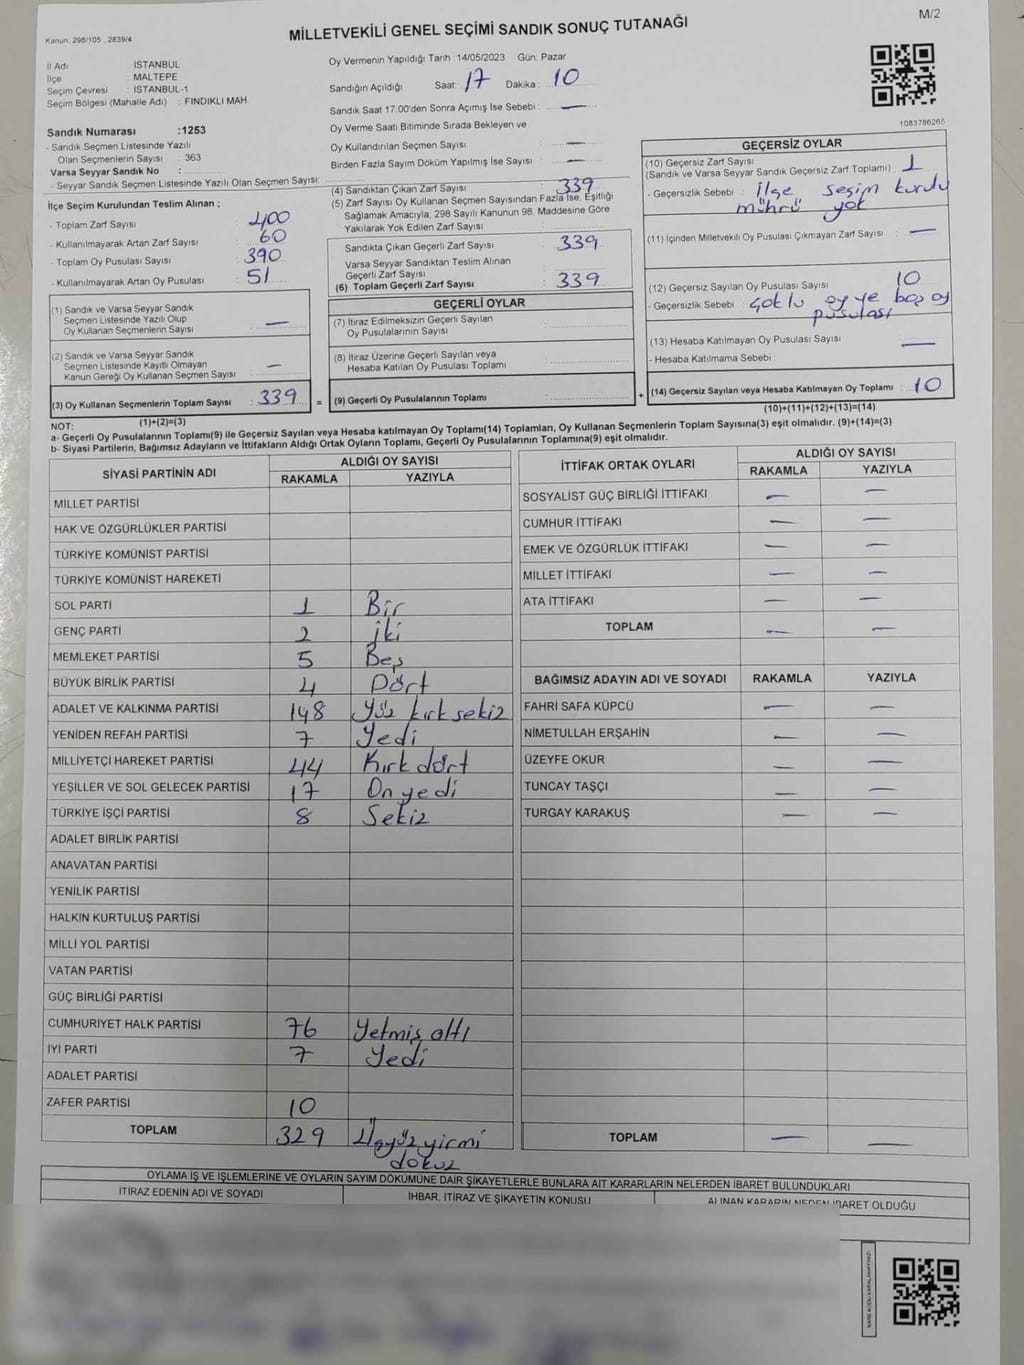 M/2
Kanun: 298/105 , 2839/4
MİLLETVEKİLİ GENEL SEÇİMİ SANDIK SONUÇ TUTANAĞI
İl Adı : İSTANBUL
İlçe : MALTEPE
Seçim Çevresi : İSTANBUL-1
Seçim Bölgesi (Mahalle Adı) : FINDIKLI MAH
Sandık Numarası :1253
- Sandık Seçmen Listesinde Yazılı
Olan Seçmenlerin Sayısı : 363
Varsa Seyyar Sandık No :
- Seyyar Sandık Seçmen Listesinde Yazılı Olan Seçmen Sayısı:
İlçe Seçim Kurulundan Teslim Alınan ;
- Toplam Zarf Sayısı : 400
- Kullanılmayarak Artan Zarf Sayısı : 60
- Toplam Oy Pusulası Sayısı : 390
- Kullanılmayarak Artan Oy Pusulası : 51
(1) Sandık ve Varsa Seyyar Sandık
Seçmen Listesinde Yazılı Olup
Oy Kullanan Seçmenlerin Sayısı : —
(2) Sandık ve Varsa Seyyar Sandık
Seçmen Listesinde Kayıtlı Olmayan
Kanun Gereği Oy Kullanan Seçmen Sayısı : —
(3) Oy Kullanan Seçmenlerin Toplam Sayısı : 339 =
(1)+(2)=(3)
Oy Vermenin Yapıldığı Tarih :14/05/2023 Gün: Pazar
Sandığın Açıldığı Saat : 17 Dakika : 10
Sandık Saat 17.00'den Sonra Açımış İse Sebebi : —
Oy Verme Saati Bitiminde Sırada Bekleyen ve
Oy Kullandırılan Seçmen Sayısı : —
Birden Fazla Sayım Döküm Yapılmış İse Sayısı : —
(4) Sandıktan Çıkan Zarf Sayısı : 339
(5) Zarf Sayısı Oy Kullanan Seçmen Sayısından Fazla İse, Eşitliği
Sağlamak Amacıyla; 298 Sayılı Kanunun 98. Maddesine Göre
Yakılarak Yok Edilen Zarf Sayısı :
Sandıkta Çıkan Geçerli Zarf Sayısı : 339
Varsa Seyyar Sandıktan Teslim Alınan
Geçerli Zarf Sayısı :
(6) Toplam Geçerli Zarf Sayısı : 339
GEÇERLİ OYLAR
(7) İtiraz Edilmeksizin Geçerli Sayılan
Oy Pusulalarının Sayısı :
(8) İtiraz Üzerine Geçerli Sayılan veya
Hesaba Katılan Oy Pusulası Toplamı :
(9) Geçerli Oy Pusulalarının Toplamı : +
1083786265
GEÇERSİZ OYLAR
(10) Geçersiz Zarf Sayısı
(Sandık ve Varsa Seyyar Sandık Geçersiz Zarf Toplamı) : 1
- Geçersizlik Sebebi : İlçe seçim kurulu
mührü yok
(11) İçinden Milletvekili Oy Pusulası Çıkmayan Zarf Sayısı : —
(12) Geçersiz Sayılan Oy Pusulası Sayısı : 10
- Geçersizlik Sebebi : çoklu oy ve boş oy
pusulası
(13) Hesaba Katılmayan Oy Pusulası Sayısı : —
- Hesaba Katılmama Sebebi :
(14) Geçersiz Sayılan veya Hesaba Katılmayan Oy Toplamı : 10
(10)+(11)+(12)+(13)=(14)
NOT:
a- Geçerli Oy Pusulalarının Toplamı(9) ile Geçersiz Sayılan veya Hesaba Katılmayan Oy Toplamı(14) Toplamları, Oy Kullanan Seçmenlerin Toplam Sayısına(3) eşit olmalıdır. (9)+(14)=(3)
b- Siyasi Partilerin, Bağımsız Adayların ve İttifakların Aldığı Ortak Oyların Toplamı, Geçerli Oy Pusulalarının Toplamına(9) eşit olmalıdır.
SİYASİ PARTİNİN ADI ALDIĞI OY SAYISI
RAKAMLA YAZIYLA
MİLLET PARTİSİ
HAK VE ÖZGÜRLÜKLER PARTİSİ
TÜRKİYE KOMÜNİST PARTİSİ
TÜRKİYE KOMÜNİST HAREKETİ
SOL PARTİ 1 Bir
GENÇ PARTİ 2 iki
MEMLEKET PARTİSİ 5 Beş
BÜYÜK BİRLİK PARTİSİ 4 Dört
ADALET VE KALKINMA PARTİSİ 148 Yüz kırk sekiz
YENİDEN REFAH PARTİSİ 7 Yedi
MİLLİYETÇİ HAREKET PARTİSİ 44 Kırk dört
YEŞİLLER VE SOL GELECEK PARTİSİ 17 On yedi
TÜRKİYE İŞÇİ PARTİSİ 8 Sekiz
ADALET BİRLİK PARTİSİ
ANAVATAN PARTİSİ
YENİLİK PARTİSİ
HALKIN KURTULUŞ PARTİSİ
MİLLİ YOL PARTİSİ
VATAN PARTİSİ
GÜÇ BİRLİĞİ PARTİSİ
CUMHURİYET HALK PARTİSİ 76 Yetmiş altı
İYİ PARTİ 7 Yedi
ADALET PARTİSİ
ZAFER PARTİSİ 10
TOPLAM 329 Üçyüz yirmi
dokuz
İTTİFAK ORTAK OYLARI ALDIĞI OY SAYISI
RAKAMLA YAZIYLA
SOSYALİST GÜÇ BİRLİĞİ İTTİFAKI — —
CUMHUR İTTİFAKI — —
EMEK VE ÖZGÜRLÜK İTTİFAKI — —
MİLLET İTTİFAKI — —
ATA İTTİFAKI — —
TOPLAM — —
BAĞIMSIZ ADAYIN ADI VE SOYADI RAKAMLA YAZIYLA
FAHRİ SAFA KÜPCÜ — —
NİMETULLAH ERŞAHİN — —
ÜZEYFE OKUR — —
TUNCAY TAŞÇI — —
TURGAY KARAKUŞ — —
TOPLAM — —
OYLAMA İŞ VE İŞLEMLERİNE VE OYLARIN SAYIM DÖKÜMÜNE DAİR ŞİKAYETLERLE BUNLARA AİT KARARLARIN NELERDEN İBARET BULUNDUKLARI
İTİRAZ EDENİN ADI VE SOYADI İHBAR, İTİRAZ VE ŞİKAYETİN KONUSU ALINAN KARARIN NEDEN İBARET OLDUĞU